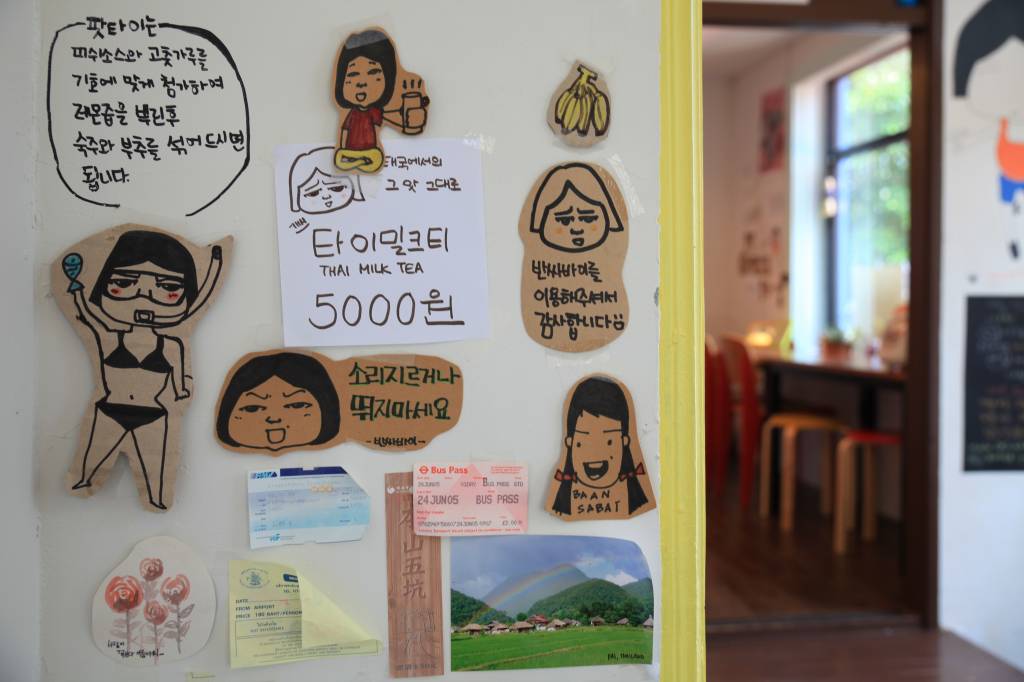 팟타이는
피쉬소스와 고춧가루를
기호에 맞게 첨가하여
레몬즙을 뿌린후
숙주와 부추를 섞어 드시면
됩니다.
태국에서의
그 맛 그대로
타이밀크티
THAI MILK TEA
5000원
반싸바이를
이용해주셔서
감사합니다
소리지르거나
뛰지마세요
-반싸바이-
BAAN
SABAI
Bus Pass
24JUN05 BUS PASS
山五坑
DATE
FROM AIRPORT
PRICE 180 BAHT/PERSON
PAI, THAILAND